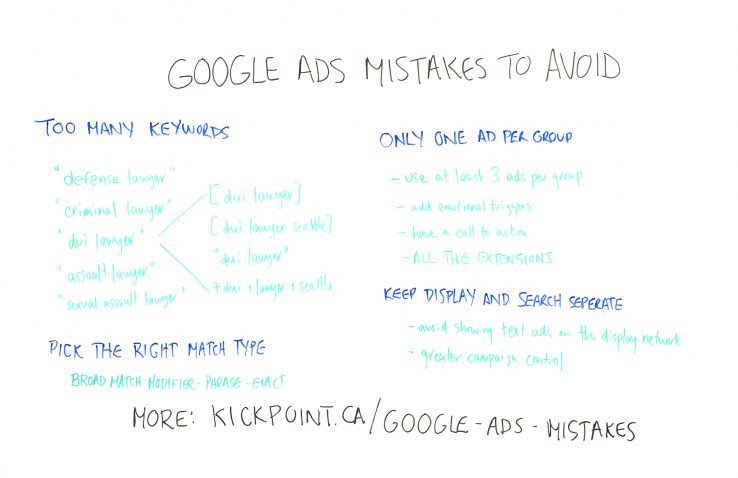 GOOGLE ADS MISTAKES TO AVOID
TOO MANY KEYWORDS
"defense lawyer"
"criminal lawyer"
"dui lawyer"
"assault lawyer"
"sexual assault lawyer"
[dui lawyer]
[dui lawyer seattle]
"dui lawyer"
+dui +lawyer +seattle
PICK THE RIGHT MATCH TYPE
BROAD MATCH MODIFIER - PHRASE - EXACT
ONLY ONE AD PER GROUP
- use at least 3 ads per group
- add emotional triggers
- have a call to action
- ALL THE EXTENSIONS
KEEP DISPLAY AND SEARCH SEPERATE
- avoid showing text ads on the display network
- greater campaign control
MORE: KICKPOINT.CA/GOOGLE-ADS-MISTAKES